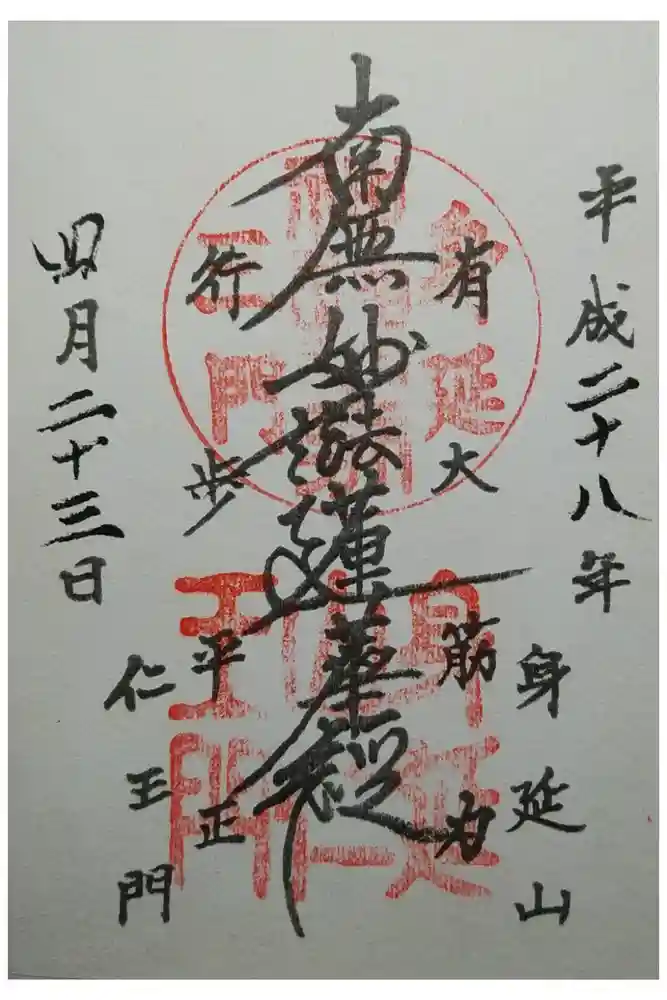 平成二十八年
身延山
有大筋力
南無妙法蓮華経
行歩平正
仁王門
四月二十三日